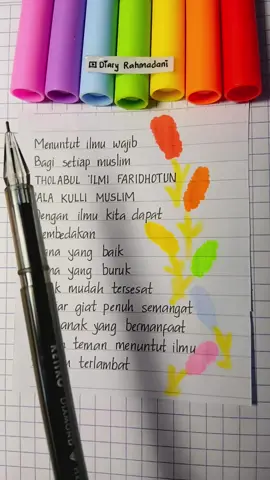 Diary Rahmadani
Menuntut ilmu wajib
Bagi setiap muslim
THOLABUL 'ILMI FARIDHOTUN
ALA KULLI MUSLIM
Dengan ilmu kita dapat
membedakan
yang baik
yang buruk
mudah tersesat
giat penuh semangat
anak yang bermanfaat
teman menuntut ilmu
terlambat